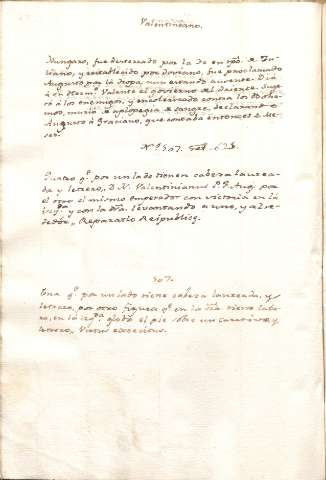 Valentiniano.
Hungaro, fue desterrado por la de en qº. de Ju-
liano, y restablecido por Joviano, fue proclamado
Augusto por la tropa, aun estando ausente. Dió
á su Hermº. Valente el govierno del Oriente. Supe-
ró á los enemigos, y encolerizado contra los
mos, murió de aplopegia de sangre, declarando
Augusto á Graciano, que contaba entonces 2. Me-
ses.
Nº. 507.
Quatro qº. por un lado tienen cabeza laurea-
da y letrero, D. N. Valentinianus P. F. Aug. por
el otro el mismo emperador con victoria en la
izqda. y con la dra. levantando a uno, y alre-
dedor, Reparatio Reipublicę.
507.
Una qº. por un lado tiene cabeza laureada, y
letrero, por otro figura qº. en la dra. tiene laba-
ro, en la izqda. globo el pie sobre un cautivo y
letrero, Virtus exercitus.